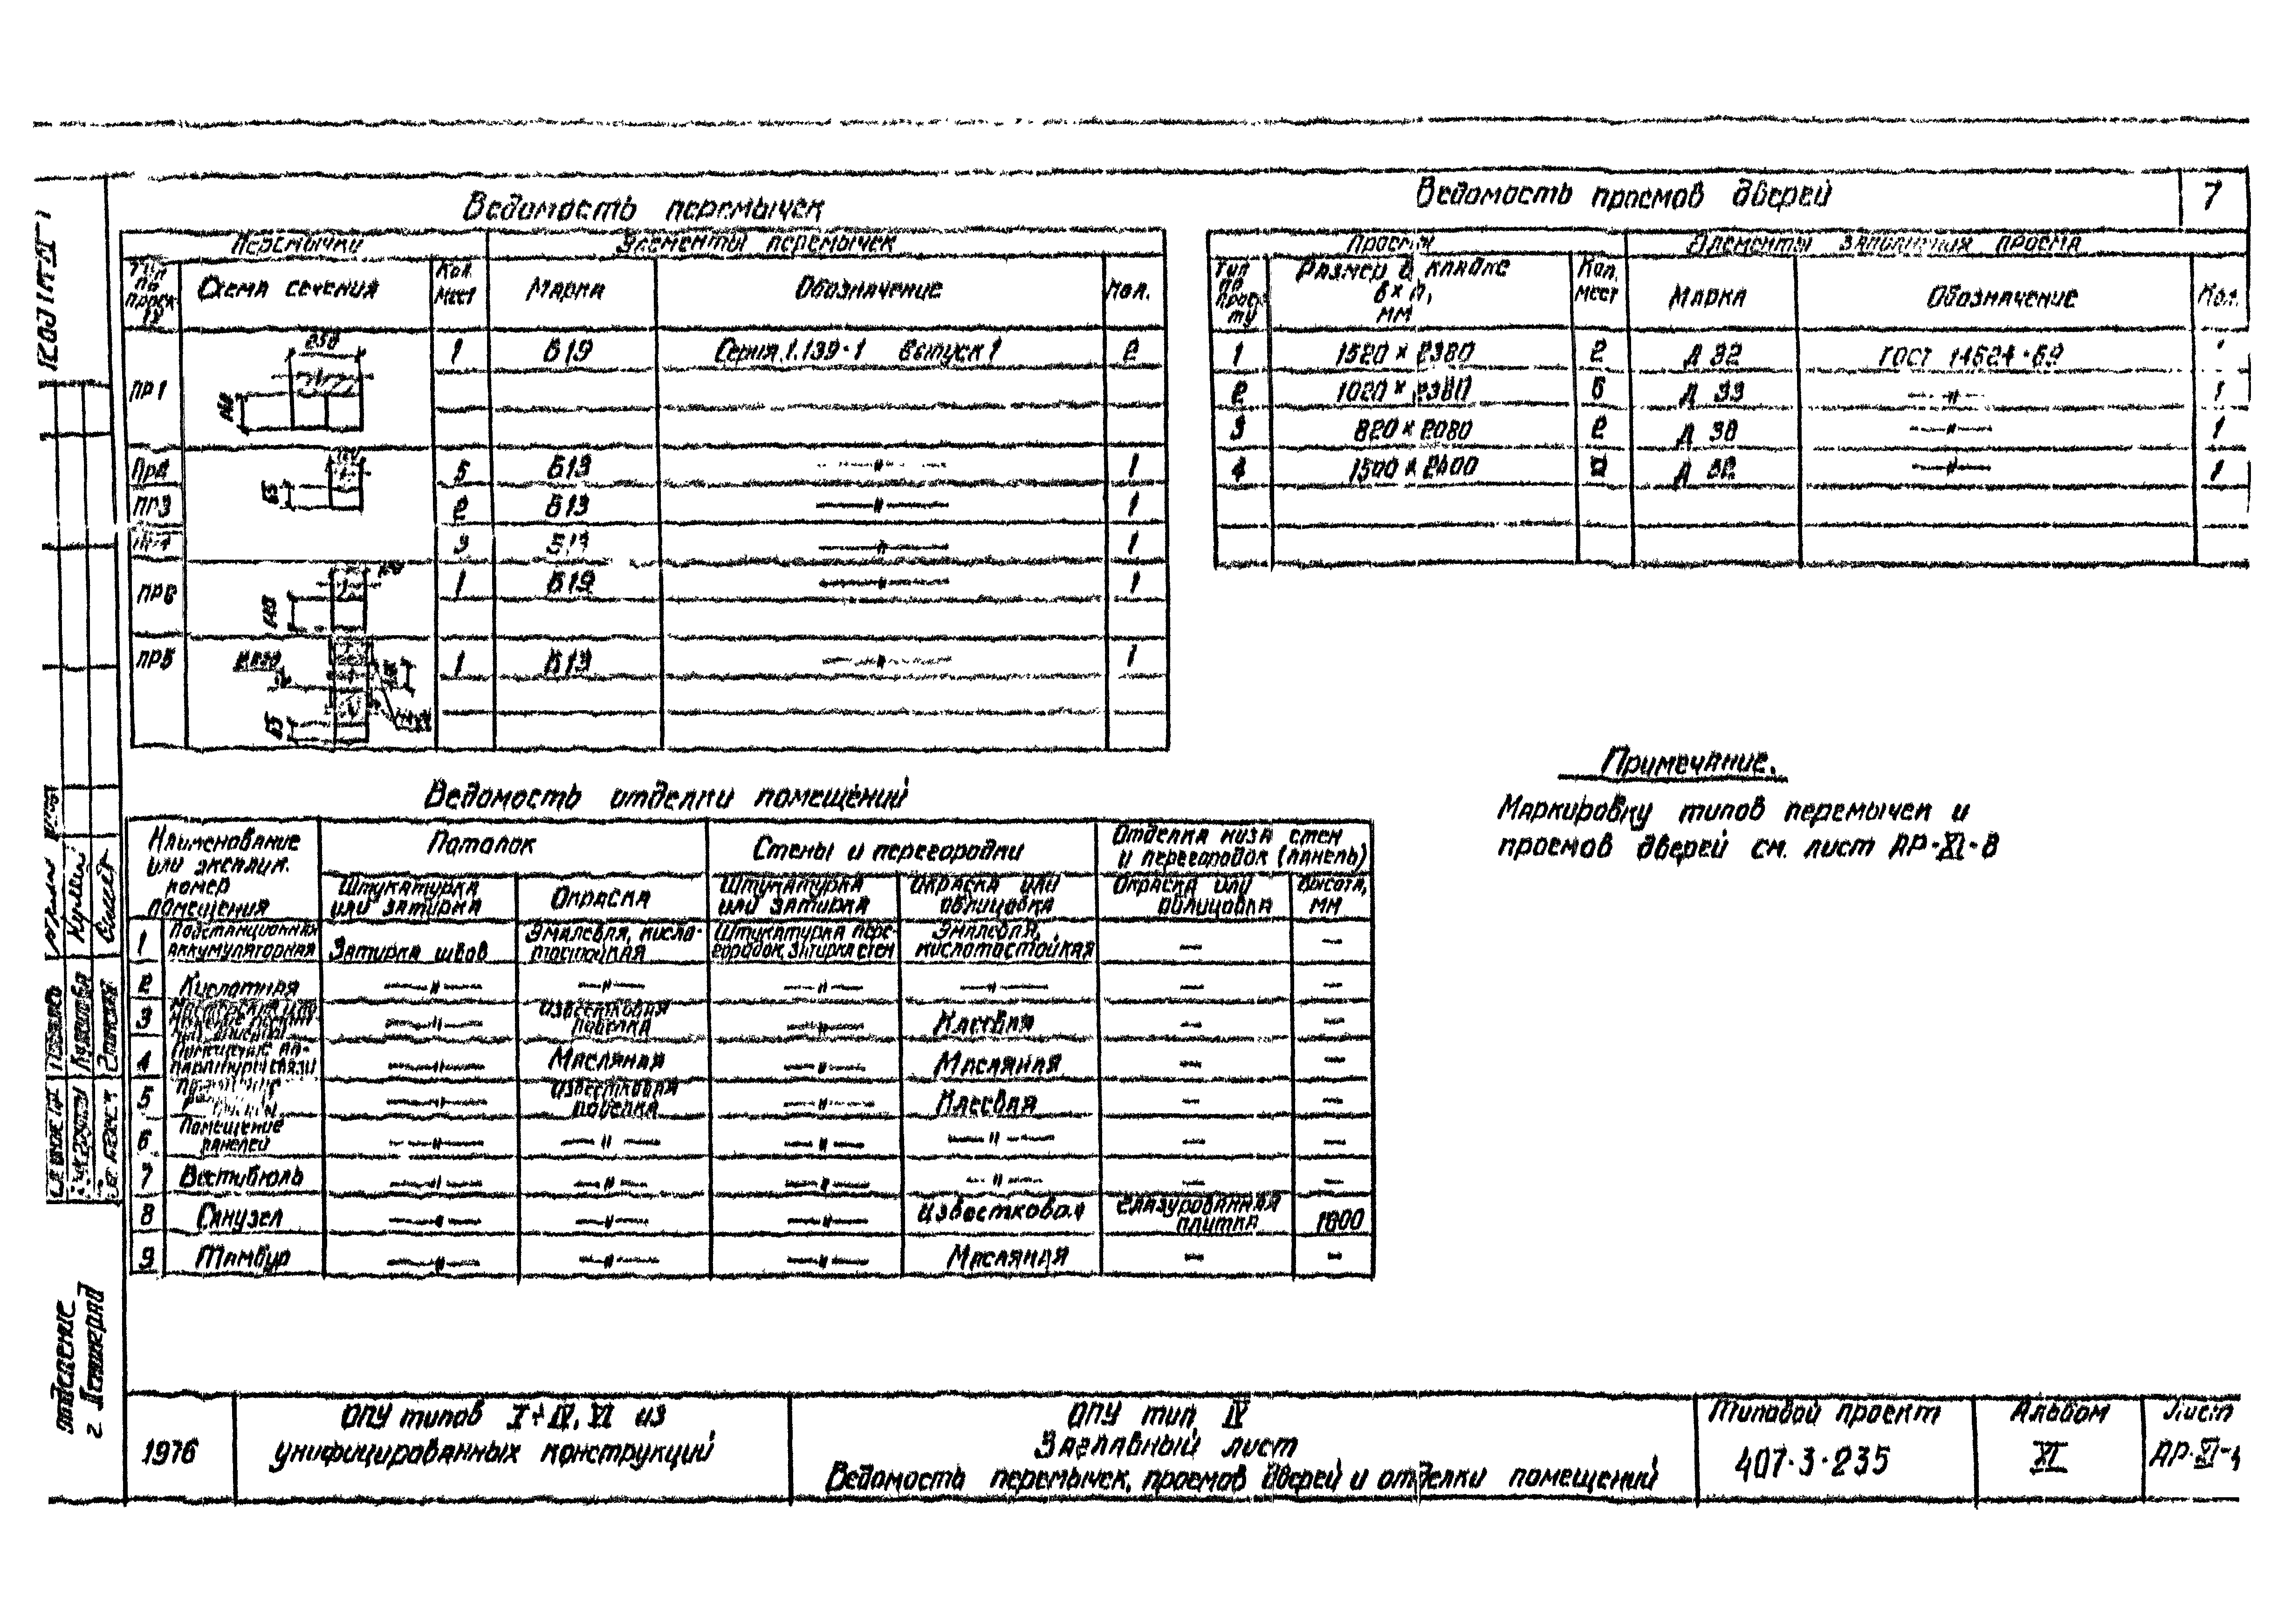 7
Ведомость перемычек
Перемычки
Элементы перемычек
Схема сечения
Кол. мест
Марка
Обозначение
Кол.
ПР1
250
1 Б19 Серия 1.139-1 Выпуск 1 2
5 Б13 —"— 1
ПР3 2 Б13 —"— 1
3 —"— 1
ПР6 1 Б19 —"— 1
ПР5 1 Б13 —"— 1
Ведомость проемов дверей
Элементы заполнения проема
Тип по проекту
Размер в кладке
в х h,
мм
Кол. мест
Марка
Обозначение
Кол.
1 1520 х 2380 2 Д 32 ГОСТ 14624-69
2 1020 х 2380 Д 33 —"— 1
3 820 х 2080 2 Д 30 —"— 1
4 1500 х 2400 —"— 1
Примечание.
Маркировку типов перемычек и
проемов дверей см. лист АР-XI-8
Ведомость отделки помещений
Наименование
или эксплик.
номер
помещения
Потолок
Стены и перегородки
Отделка низа стен
и перегородок (панель)
Штукатурка
или затирка
Окраска
Штукатурка
или затирка
Окраска или
облицовка
Окраска или
облицовка
Высота,
мм
1 Подстанционная
аккумуляторная
Затирка швов
Эмалевая, кисло-
тостойкая
Штукатурка пере-
городок, затирка стен
Эмалевая,
кислотостойкая
— —
2 Кислотная —"— —"— —"— —"— — —
3 —"— Известковая
побелка
—"— Клеевая — —
4 Помещение ап-
паратуры связи
—"— Масляная —"— Масляная — —
5 —"— Известковая
побелка
—"— Клеевая — —
6 Помещение
панелей
—"— —"— —"— —"— — —
7 Вестибюль —"— —"— —"— —"— — —
8 Санузел —"— —"— —"— Известковая Глазурованная
плитка
1800
9 Тамбур —"— —"— —"— Масляная — —
отделение
г. Ленинград
1976
ОПУ типов I÷IV, VI из
унифицированных конструкций
ОПУ тип IV
Заглавный лист
Ведомость перемычек, проемов дверей и отделки помещений
Типовой проект
407-3-235
Альбом
XI
Лист